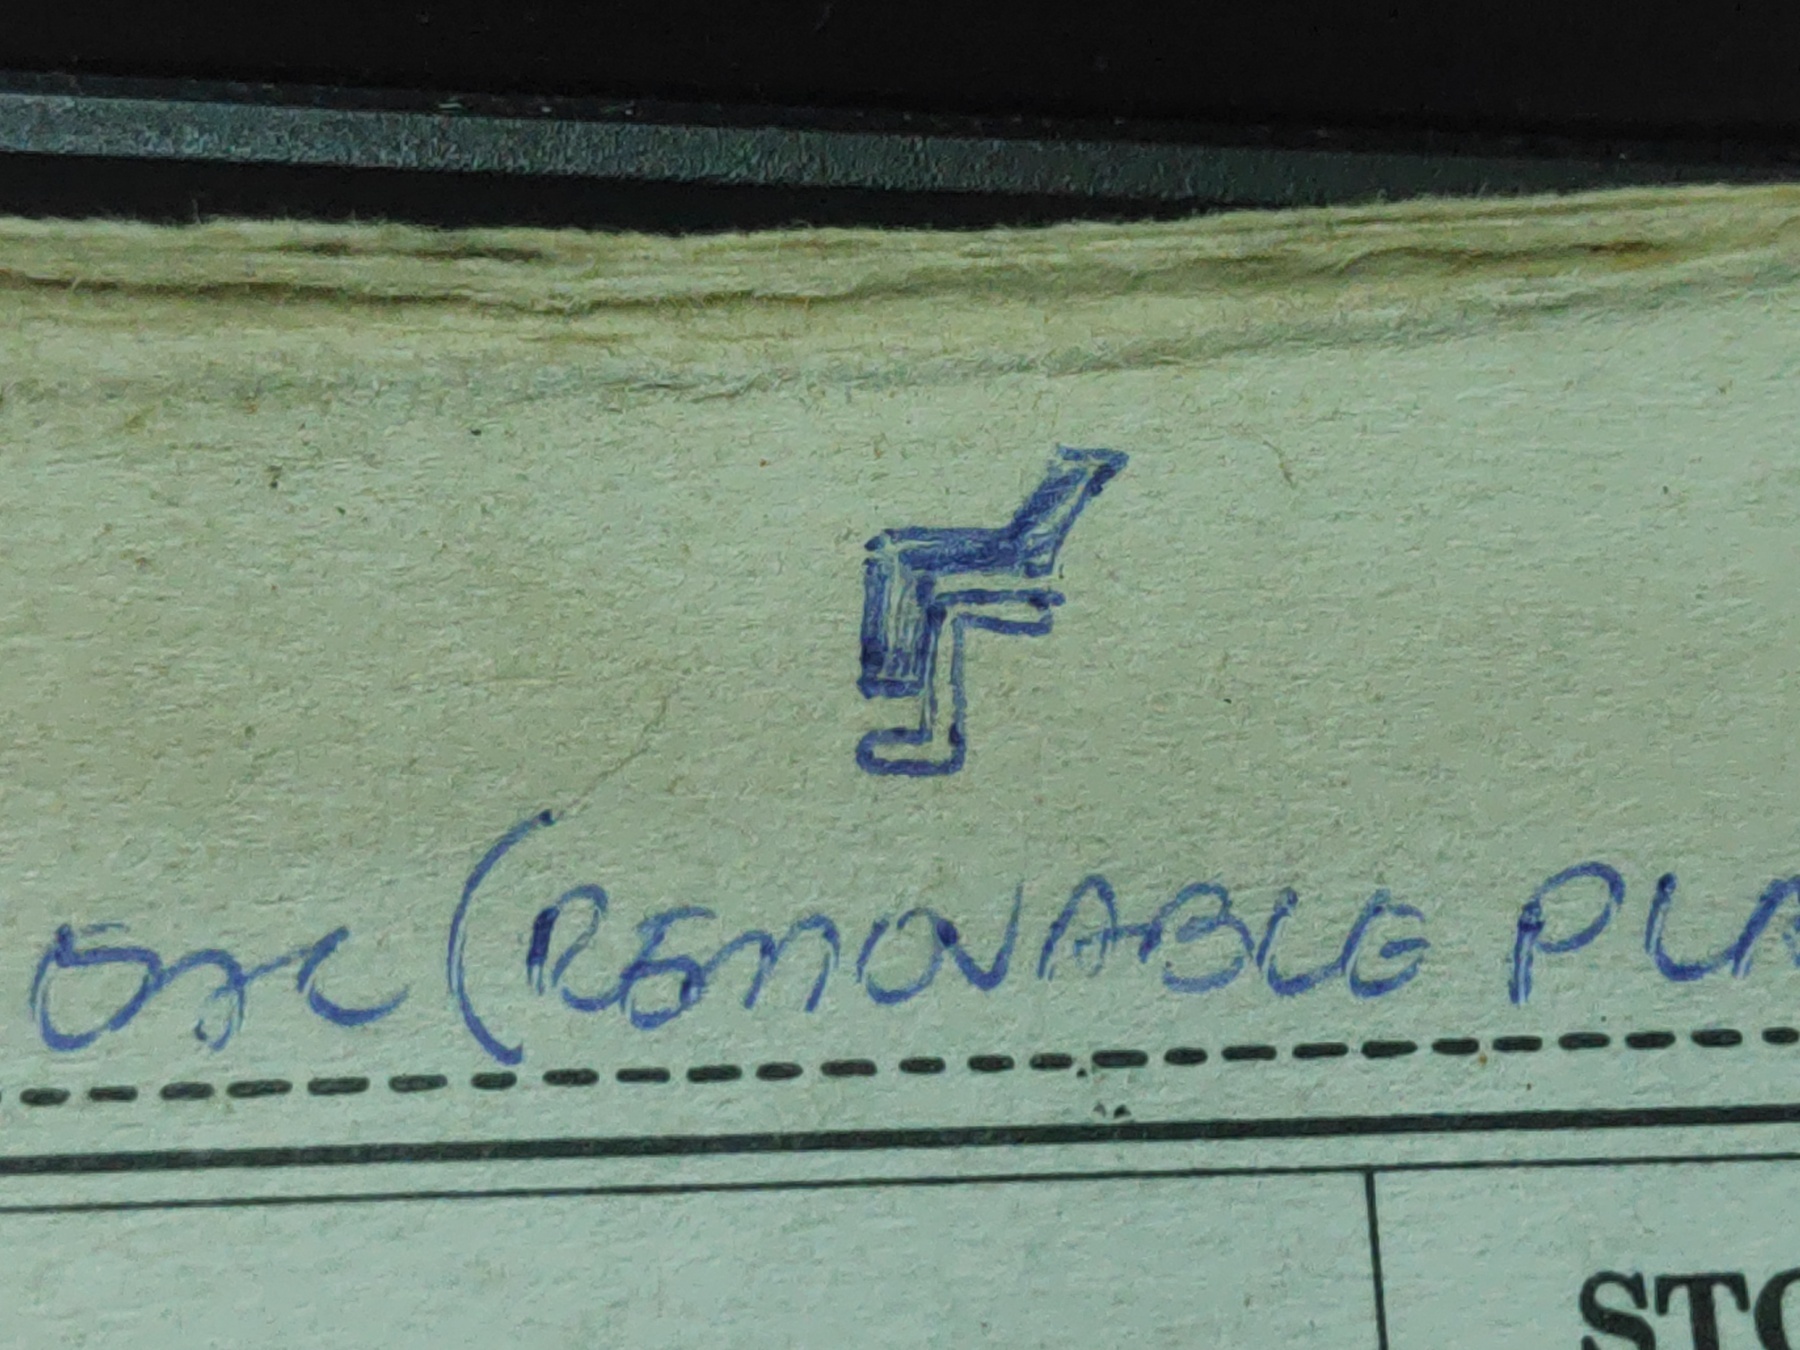 (REMOVABLE PLA
STO